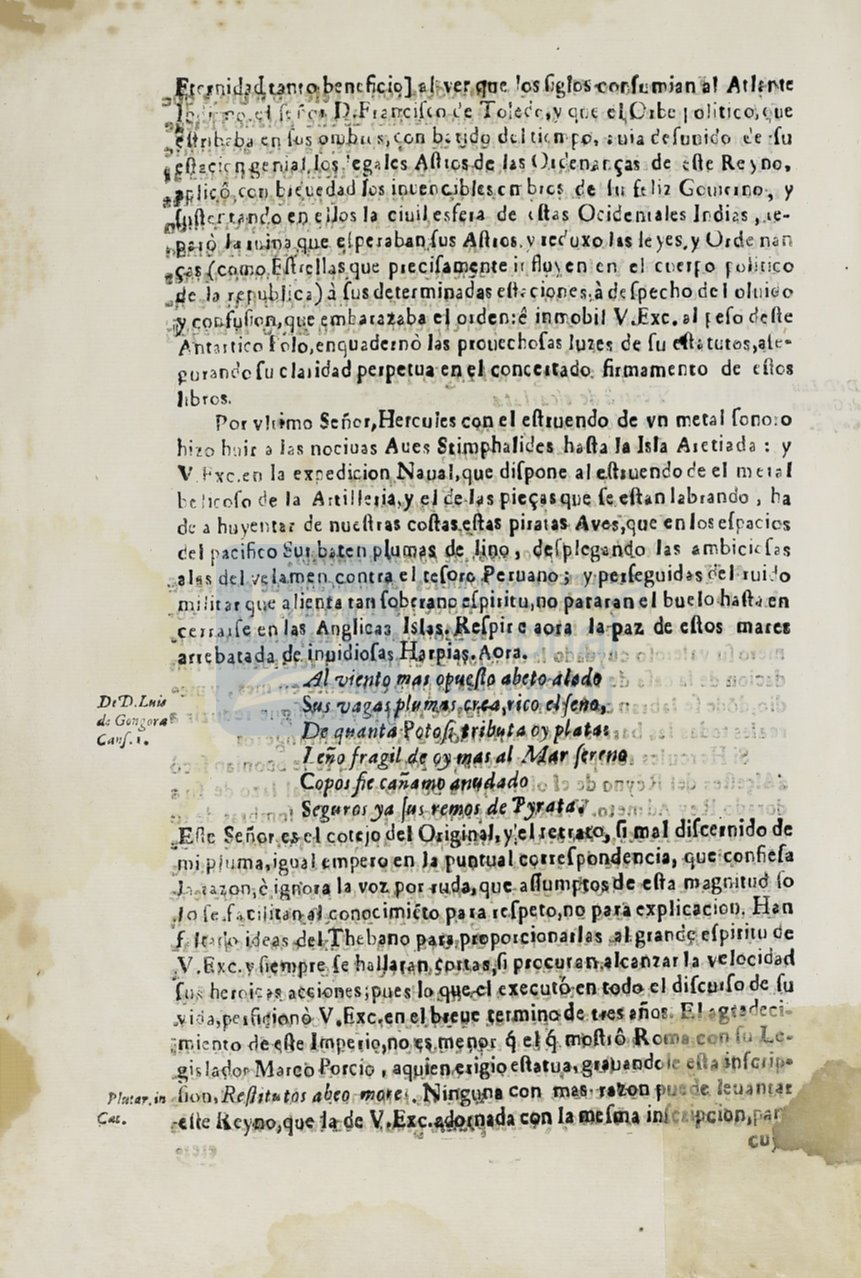 Eternidad tanto beneficio] al ver que los siglos consumian al Atlante
el señor D. Francisco de Toledo, y que el Orbe politico, que
estribaba en sus ombros, con batido del tiempo, auia desunido de su
estacion genial, los legales Astros de las Ordenanças de este Reyno,
aplicó, con breuedad los inuencibles ombros de su feliz Gouierno, y
sustentando en ellos la ciuil esfera de estas Ocidentales Indias, re-
paró la ruina que esperaban sus Astros, y reduxo las leyes, y Ordenan
ças (como Estrellas que precisamente influyen en el cuerpo politico
de la republica) à sus determinadas estaciones, à despecho del oluido
y confusion, que embarazaba el orden: é inmobil V.Exc. al peso deste
Antartico Polo, enquadernò las prouechosas luzes de su estatutos, ase-
gurando su claridad perpetua en el concertado firmamento de estos
libros.
Por vltimo Señor, Hercules con el estruendo de vn metal sonoro
hizo huir a las nociuas Aues Stimphalides hasta la Isla Aretiada: y
V.Exc. en la expedicion Naual, que dispone al estruendo de el metal
belicoso de la Artilleria, y el de las pieças que se estan labrando, ha
de a huyentar de nuestras costas estas piratas Aves, que en los espacios
del pacifico Sur baten plumas de lino, desplegando las ambiciosas
alas del velamen contra el tesoro Peruano; y perseguidas del ruido
militar que alienta tan soberano espiritu, no pararan el buelo hasta en
cerrarse en las Anglicas Islas. Respire aora la paz de estos mares
arrebatada de inuidiosas Harpias. Aora.
Al viento mas opuesto abeto alado
De D. Luis
de Gongora
Cans. 1.
Sus vagas plumas crea, rico el seno,
De quanta Potosi tributa oy plata:
Leño fragil de oy mas al Mar sereno
Copos fie cañamo anudado
Seguros ya sus remos de Pyrata.
Este Señor es el cotejo del Original, y el retrato, si mal discernido de
mi pluma, igual empero en la puntual correspondencia, que confiesa
la razon, è ignora la voz por ruda, que assumptos de esta magnitud so
lo se facilitan al conocimiẽto para respeto, no para explicacion. Han
faltado ideas del Thebano para proporcionarlas al grande espiritu de
V.Exc. y siempre se hallaran cortas, si procuran alcanzar la velocidad
sus heroicas acciones; pues lo que el executó en todo el discurso de su
vida, perficionò V.Exc. en el breue termino de tres años. El agradeci-
miento de este Imperio, no es menor q̃ el q̃ mostrò Roma con su Le-
gislador Marco Porcio, aquien erigio estatua, grabandole esta inscrip-
Plutar. in
Cat.
sion, Restitutos abeo mores. Ninguna con mas razon puede leuantar
este Reyno, que la de V.Exc. adornada con la mesma inscripcion, par
cuy